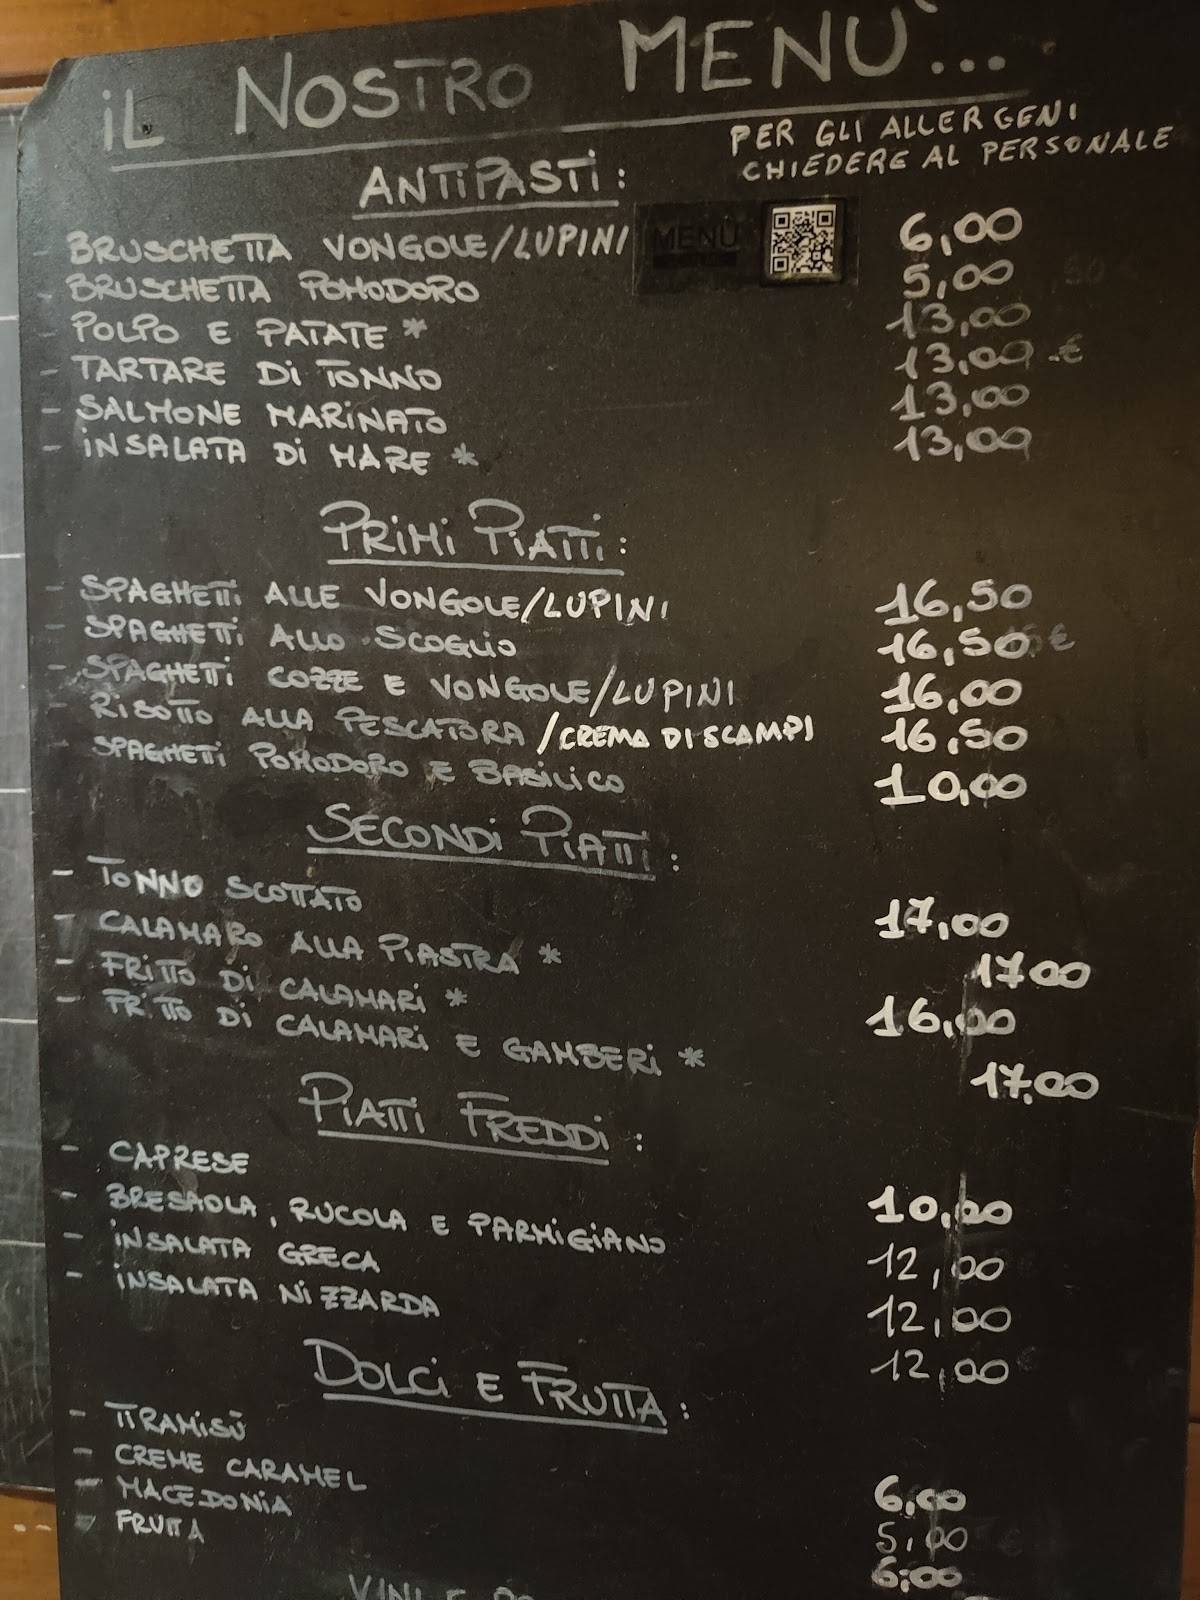 iL NOSTRO MENÙ...
PER GLI ALLERGENI
CHIEDERE AL PERSONALE
ANTIPASTI:
MENÙ
- BRUSCHETTA VONGOLE/LUPINI 6,00
- BRUSCHETTA POMODORO 5,00
- POLPO E PATATE * 13,00
- TARTARE DI TONNO 13,00 €
- SALMONE MARINATO 13,00
- INSALATA DI MARE * 13,00
PRIMI PIATTI:
- SPAGHETTI ALLE VONGOLE/LUPINI 16,50
- SPAGHETTI ALLO SCOGLIO 16,50 €
- SPAGHETTI COZZE E VONGOLE/LUPINI 16,00
- RISOTTO ALLA PESCATORA/CREMA DI SCAMPI 16,50
- SPAGHETTI POMODORO E BASILICO 10,00
SECONDI PIATTI:
- TONNO SCOTTATO 17,00
- CALAMARO ALLA PIASTRA * 17.00
- FRITTO DI CALAMARI * 16,00
- FRITTO DI CALAMARI E GAMBERI * 17.00
PIATTI FREDDI:
- CAPRESE 10,00
- BRESAOLA, RUCOLA E PARMIGIANO 12,00
- INSALATA GRECA 12,00
- INSALATA NIZZARDA 12,00
DOLCI E FRUTTA:
- TIRAMISÙ 6,00
- CREME CARAMEL 5,00
- MACEDONIA 6,00
- FRUTTA
VINI E